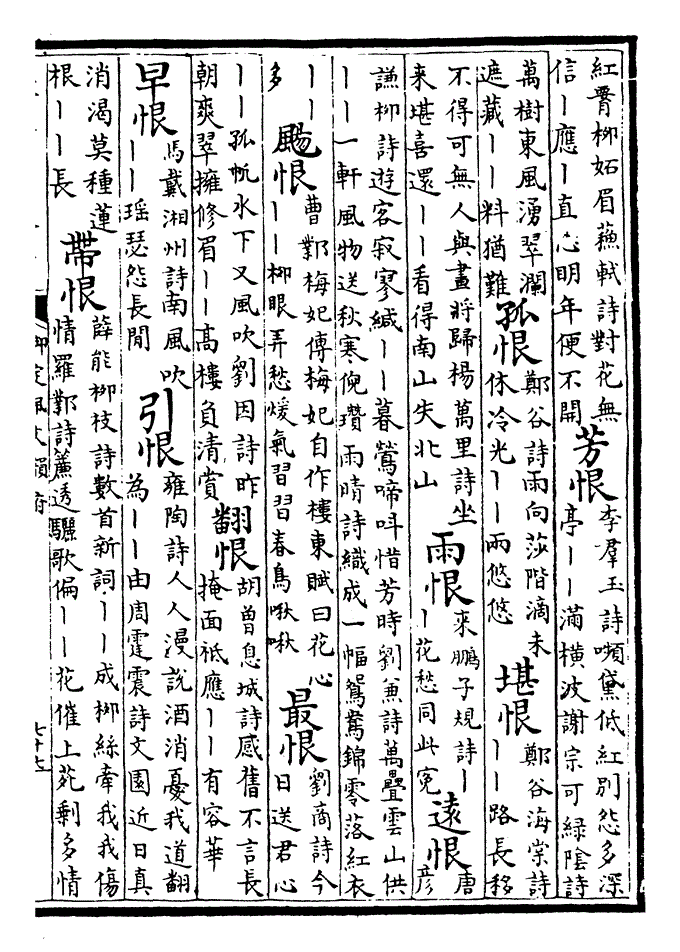 紅臀柳妬眉蘇軾詩對花無
信丨應丨直心明年便不開
芳恨
李羣玉詩嚬黛低紅別怨多深
亭丨丨滿橫波謝宗可綠陰詩
萬樹東風湧翠瀾
遮藏丨丨料猶難
孤恨
鄭谷詩雨向莎階滴未
休冷光丨丨雨悠悠
堪恨
鄭谷海棠詩
丨丨路長移
不得可無人與畫將歸楊萬里詩坐
來堪喜還丨丨看得南山失北山
雨恨
來鵬子規詩丨
丨花愁同此冤
遠恨
唐
彦
謙柳詩遊客寂寥緘丨丨暮鶯啼呌惜芳時劉兼詩萬疊雲山供
丨丨一軒風物送秋寒倪瓚雨晴詩織成一幅鴛鴦錦零落紅衣
丨丨
多
颺恨
曹鄴梅妃傳梅妃自作樓東賦曰花心
丨丨柳眼弄愁煖氣習習春鳥啾啾
最恨
劉商詩今
日送君心
丨丨孤帆水下又風吹劉因詩昨
朝爽翠擁修眉丨丨高樓負清賞
翻恨
胡曾息城詩感舊不言長
掩面祗應丨丨有容華
早恨
馬戴湘州詩南風吹
丨丨瑶瑟怨長閒
引恨
雍陶詩人人漫說酒消憂我道翻
為丨丨由周霆震詩文園近日真
消渴莫種蓮
根丨丨長
帶恨
薛能柳枝詩數首新詞丨丨成柳絲牽我我傷
情羅鄴詩簾透驪歌偏丨丨花催上苑剩多情
御定佩文韻府
七十七